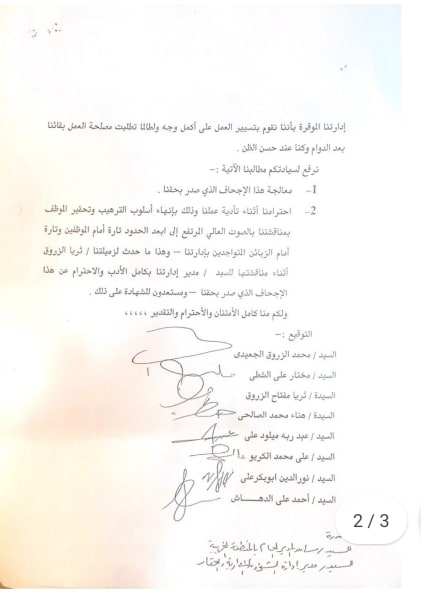 إدارتنا الموقرة بأننا نقوم بتسيير العمل على أكمل وجه ولطالما تطلبت مصلحة العمل بقائنا
بعد الدوام وكنا عند حسن الظن .
نرفع لسيادتكم مطالبنا الآتية :–
1– معالجة هذا الإجحاف الذي صدر بحقنا .
2– احترامنا أثناء تأدية عملنا وذلك بإنهاء أسلوب الترهيب وتحقير الموظف
بمناقشتنا بالصوت العالي المرتفع إلى ابعد الحدود تارة أمام الموظفين وتارة
أمام الزبائن المتواجدين بإدارتنا – وهذا ما حدث لزميلتنا / ثريا الزروق
أثناء مناقشتها للسيد / مدير إدارتنا بكامل الأدب والاحترام عن هذا
الإجحاف الذي صدر بحقنا – ومستعدون للشهادة على ذلك .
ولكم منا كامل الأمتنان والأحترام والتقدير ،،،،،
التوقيع :–
السيد / محمد الزروق الجعيدى
السيد / مختار على الشطى
السيدة / ثريا مفتاح الزروق
السيدة / هناء محمد الصالحى
السيد / عبد ربه ميلود على
السيد / على محمد الكريو
السيد / نورالدين ابوبكرعلى
السيد / أحمد على الدهـــاش
2/3